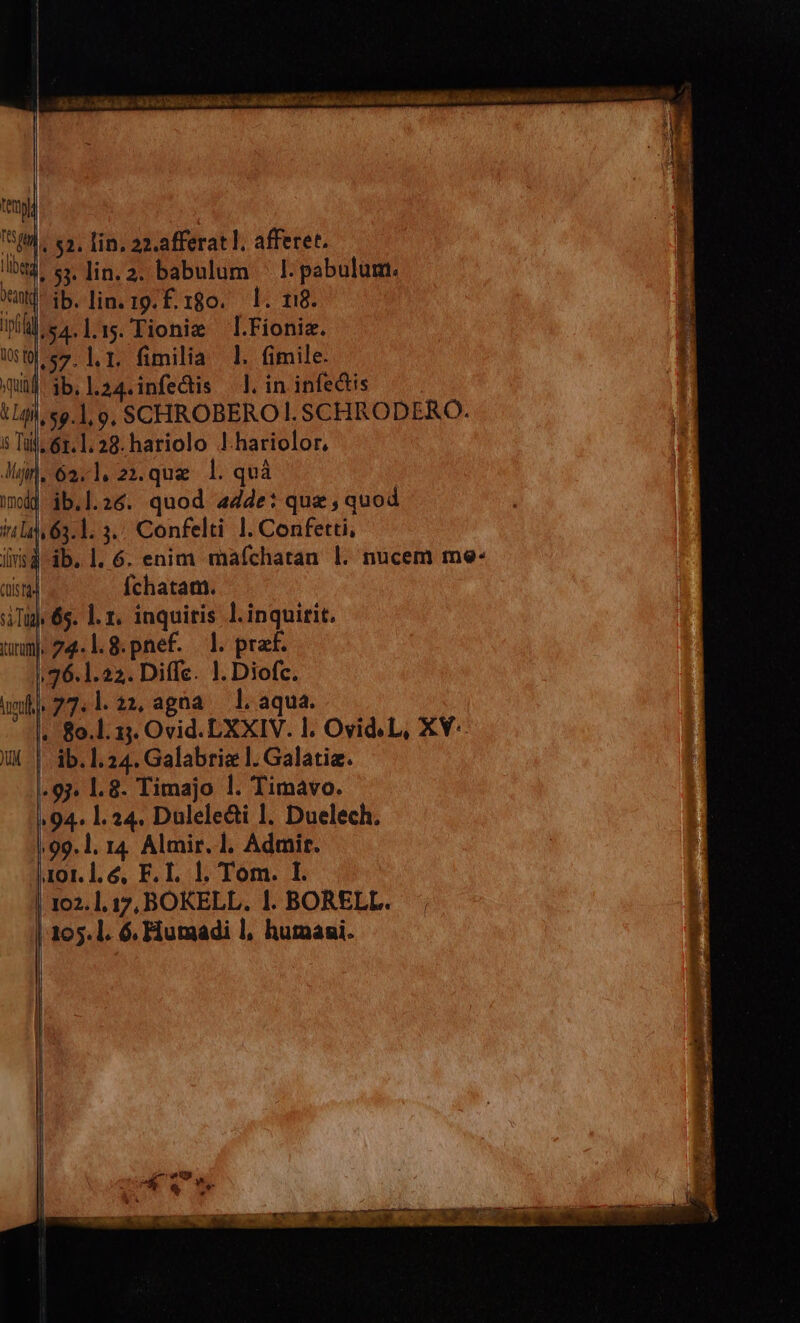 52. lin. 22. afferat l. afferet.
53. lin. 2. babulum l. pabulum.
ib. lin. 19. f. 180. l. 118.
54. l. 15. Tioniæ l. Fioniæ.
57. l. 1. ſimilia l. ſimile.
ib. l. 24. infectis l. in infectis
59. l. 9. SCHROBERO l. SCHRODERO.
61. l. 28. hariolo l hariolor,
62. l. 22. quæ l. quà
ib. l. 26. quod adde: quæ, quod
63. l. 3. Confelti l. Confetti,
ib. l. 6. enim maſchatan l. nucem mo-
ſchatam.
65. l. 1. inquiris l. inquirit.
74. l. 8. pnef. l. præf.
76. l. 22. Diſſc. l. Dioſc.
77. l. 22, agna l. aqua.
80. l. 13. Ovid. LXXIV. l. Ovid. L, XV.
ib. l. 24. Galabriæ l. Galatiæ.
93. l. 8. Timajo l. Timavo.
94. l. 24. Dulelecti l. Duelech.
99. l. 14 Almir. l. Admir.
101. l. 6, F. I. l. Tom. I.
102. l. 17, BOKELL. l. BORELL.
105. l. 6. Humadi l, humani.